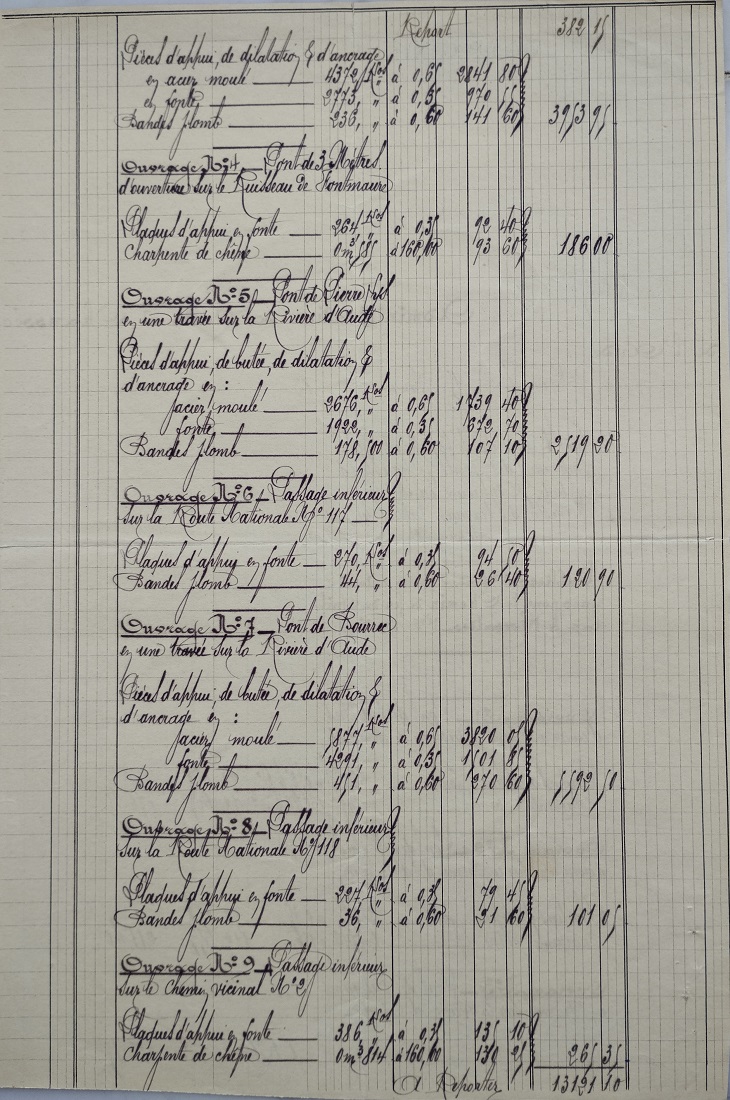 Report 382 15
Pièces d'appui, de dilatation & d'ancrage
en acier moulé 4372, Kos à 0,65 2841 80
en fonte 2773, " à 0,35 970 55
Bandes plomb 236, " à 0,60 141 60 3953 95
Ouvrage No 4 Pont de 3 Mètres
d'ouverture sur le Ruisseau de Fontmaure
Plaques d'appui en fonte 264, Kos à 0,35 92 40
Charpente de chêne 0m³585 à 160,00 93 60 186 00
Ouvrage No 5 Pont de Pierre Lys
en une travée sur la Rivière d'Aude
Pièces d'appui, de butée, de dilatation &
d'ancrage en :
acier moulé 2676, Kos à 0,65 1739 40
fonte 1922, " à 0,35 672 70
Bandes plomb 178,500 à 0,60 107 10 2519 20
Ouvrage No 6 Passage inférieur
sur la Route Nationale No 117
Plaques d'appui en fonte 270, Kos à 0,35 94 50
Bandes plomb 44, " à 0,60 26 40 120 90
Ouvrage No 7 Pont de Bourrec
en une travée sur la Rivière d'Aude
Pièces d'appui, de butée, de dilatation &
d'ancrage en :
acier moulé 5877, Kos à 0,65 3820 05
fonte 4291, " à 0,35 1501 85
Bandes plomb 451, " à 0,60 270 60 5592 50
Ouvrage No 8 Passage inférieur
sur la Route Nationale No 118
Plaques d'appui en fonte 227, Kos à 0,35 79 45
Bandes plomb 36, " à 0,60 21 60 101 05
Ouvrage No 9 Passage inférieur
sur le chemin vicinal No 2
Plaques d'appui en fonte 386, Kos à 0,35 135 10
Charpente de chêne 0m³814 à 160,00 130 25 265 35
A Reporter 13121 10